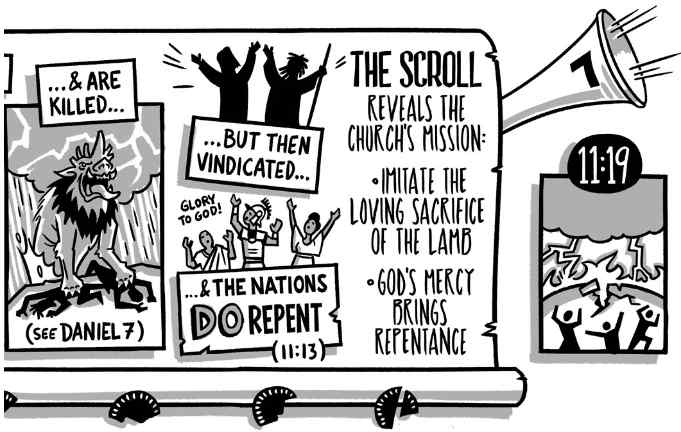 ...& ARE
KILLED...
(SEE DANIEL 7)
...BUT THEN
VINDICATED...
GLORY
TO GOD!
...& THE NATIONS
DO REPENT
(11:13)
THE SCROLL
REVEALS THE
CHURCH'S MISSION:
•IMITATE THE
LOVING SACRIFICE
OF THE LAMB
•GOD'S MERCY
BRINGS
REPENTANCE
7
11:19